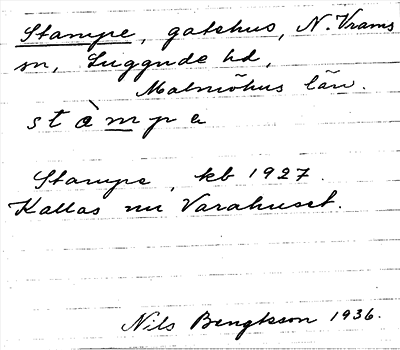 Stampe, gatehus, N. Vrams
sn, Luggude hd,
Malmöhus län.
stàmpa
Stampe, kb 1927.
Kallas nu Varahuset.
Nils Bengtsson 1936.